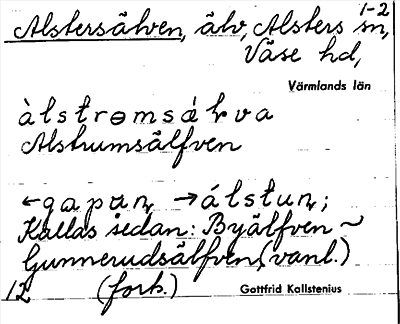 1-2
Alstersälven, älv, Alsters sn,
Väse hd,
Värmlands län
àlstrɵmsǽlva
Alstrumsälfven
←gapaṇ →álstuṇ;
Kallas sedan: Byälfven ~
Gunnerudsälfven, (vanl.)
12 (fork.) Gottfrid Kallstenius